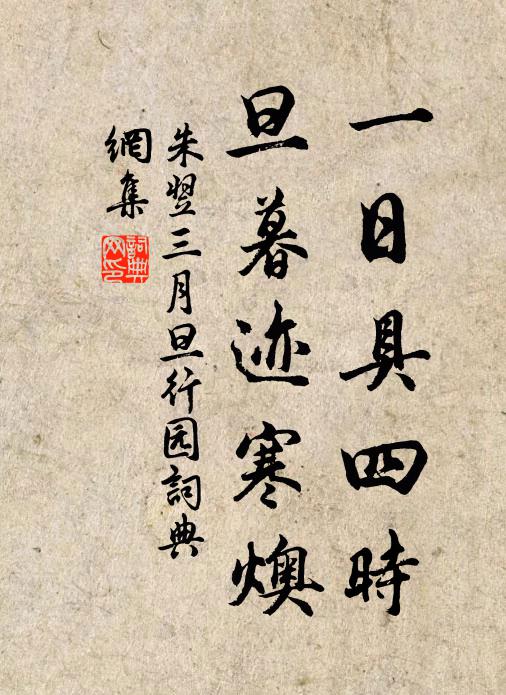 一日具四時
旦暮迹寒燠
朱翌三月旦行园詞典
網集
詞典网印